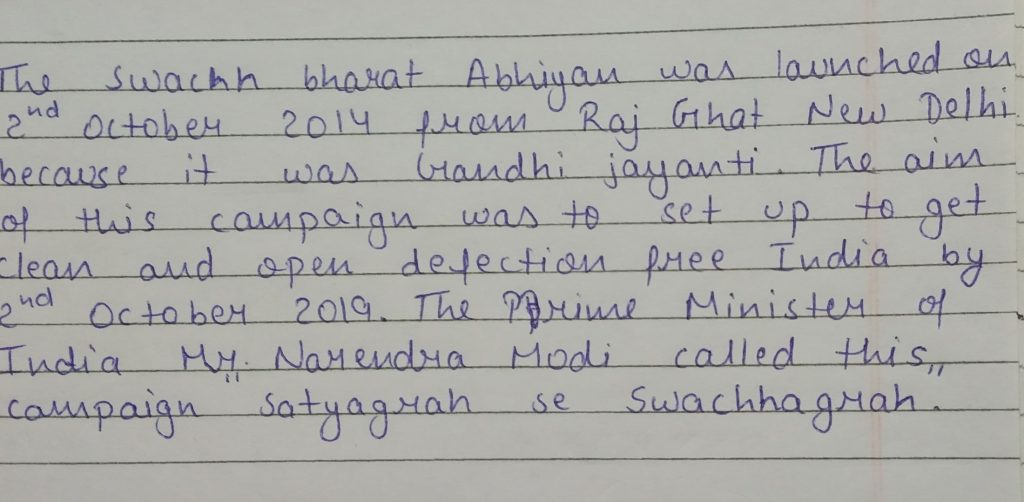 The Swachh bharat Abhiyan was launched on
2nd October 2014 from Raj Ghat New Delhi
because it was Gandhi jayanti. The aim
of this campaign was to set up to get
clean and open defection free India by
2nd October 2019. The Prime Minister of
India Mr. Narendra Modi called this
campaign "satyagrah se Swachhagrah."